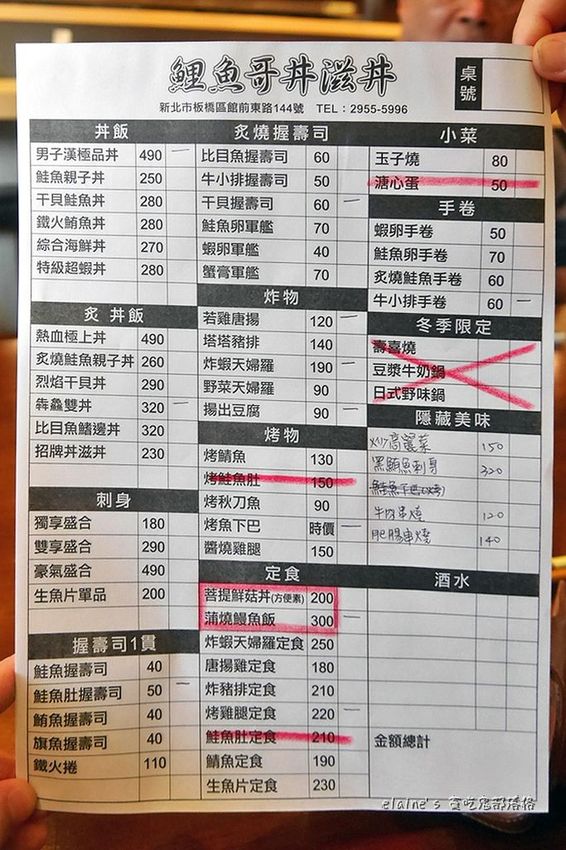 鯉魚哥丼滋丼
桌號
新北市板橋區館前東路144號 TEL：2955-5996
丼飯
男子漢極品丼 490 一
鮭魚親子丼 250
干貝鮭魚丼 280
鐵火鮪魚丼 280
綜合海鮮丼 270
特級超蝦丼 280
炙 丼飯
熱血極上丼 490
炙燒鮭魚親子丼 260
烈焰干貝丼 290
犇鱻雙丼 320 一
比目魚鰭邊丼 320
招牌丼滋丼 230
刺身
獨享盛合 180
雙享盛合 290
豪氣盛合 490
生魚片單品 200
握壽司1貫
鮭魚握壽司 40
鮭魚肚握壽司 50 一
鮪魚握壽司 40
旗魚握壽司 40
鐵火捲 110
炙燒握壽司
比目魚握壽司 60
牛小排握壽司 50
干貝握壽司 60 一
鮭魚卵軍艦 70
蝦卵軍艦 40
蟹膏軍艦 70
炸物
若雞唐揚 120 一
塔塔豬排 140
炸蝦天婦羅 190 一
野菜天婦羅 90
揚出豆腐 90 一
烤物
烤鯖魚 130
烤鮭魚肚 150
烤秋刀魚 90
烤魚下巴 時價 一
醬燒雞腿 150
定食
菩提鮮菇丼(方便素) 200
蒲燒鰻魚飯 300 一
炸蝦天婦羅定食 250
唐揚雞定食 180
炸豬排定食 210
烤雞腿定食 220 一
鮭魚肚定食 210
鯖魚定食 190
生魚片定食 230
小菜
玉子燒 80
溏心蛋 50
手卷
蝦卵手卷 50
鮭魚卵手卷 70
炙燒鮭魚手卷 60
牛小排手卷 60 一
冬季限定
壽喜燒
豆漿牛奶鍋
日式野味鍋
隱藏美味
炒高麗菜 150
黑鮪魚刺身 320
牛肉串燒 120
肥腸串燒 140
酒水
金額總計
elaine's 貪吃鬼部落格